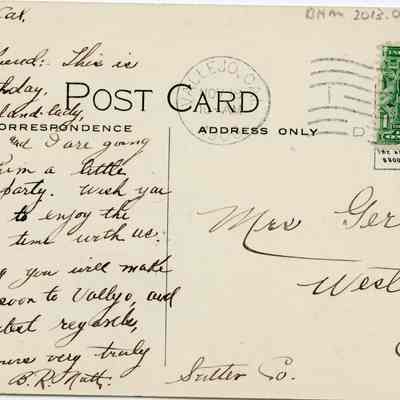 Cal,
BHM 2013.0
friend: This is
thday,
land-lady,
and I are going
him a little
party. Wish you
to enjoy the
time with us.
you will make
soon to Vallejo, and
best regards,
yours very truly
B. R. Natt.
VALLEJO, CA
POST CARD
ORRESPONDENCE
ADDRESS ONLY
Mrs Ger
West
Sutter Co.